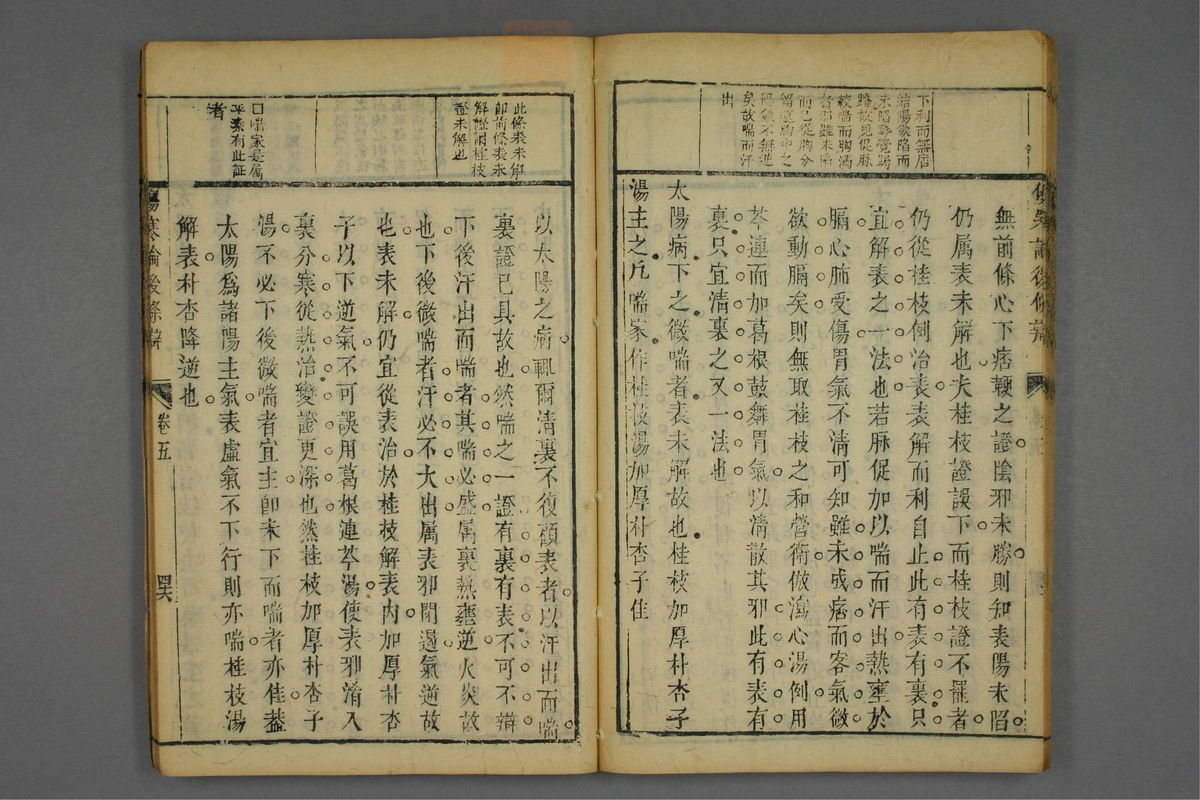 下利而無居
結陽欲陷而
未陷
脉
較喘而胸滿
者邪雖未陷
而已從胸分
留連胸中之
陽氣不無逆
矣故喘而汗
出
無前條心下痞鞕之證陰邪未勝則知表陽未陷
仍属表未解也夫桂枝證誤下而桂枝證不罷者
仍從桂枝例治表表解而利自止此有表有裏只
宜解表之一法也若脉促加以喘而汗出熱壅於
膈心肺受傷胃氣不清可知雖未成痞而客氣微
欲動膈矣則無取桂枝之和營衛倣瀉心湯例用
芩連而加葛根鼓舞胃氣以清散其邪此有表有
裏只宜清裏之又一法也
太陽病下之微喘者表未解故也桂枝加厚朴杏子
湯主之凡喘家作桂枝湯加厚朴杏子佳
此條表未解
即前條表未
解證謂桂枝
證未解也
喘家是属
平素有此証
者
以太陽之病輒爾清裏不復顧表者以汗出而喘
裏證已具故也然喘之一證有裏有表不可不辯
下後汗出而喘者其喘必盛属裏熱壅逆火炎故
也下後微喘者汗必不大出属表邪閉遏氣逆故
也表未解仍宜從表治於桂枝解表内加厚朴杏
子以下逆氣不可誤用葛根連芩湯使表邪淆入
裏分寒從熱治變證更深也然桂枝加厚朴杏子
湯不必下後微喘者宜主卽未下而喘者亦佳蓋
太陽爲諸陽主氣表虛氣不下行則亦喘桂枝湯
解表朴杏降逆也
傷寒論後條辯
卷五
四六